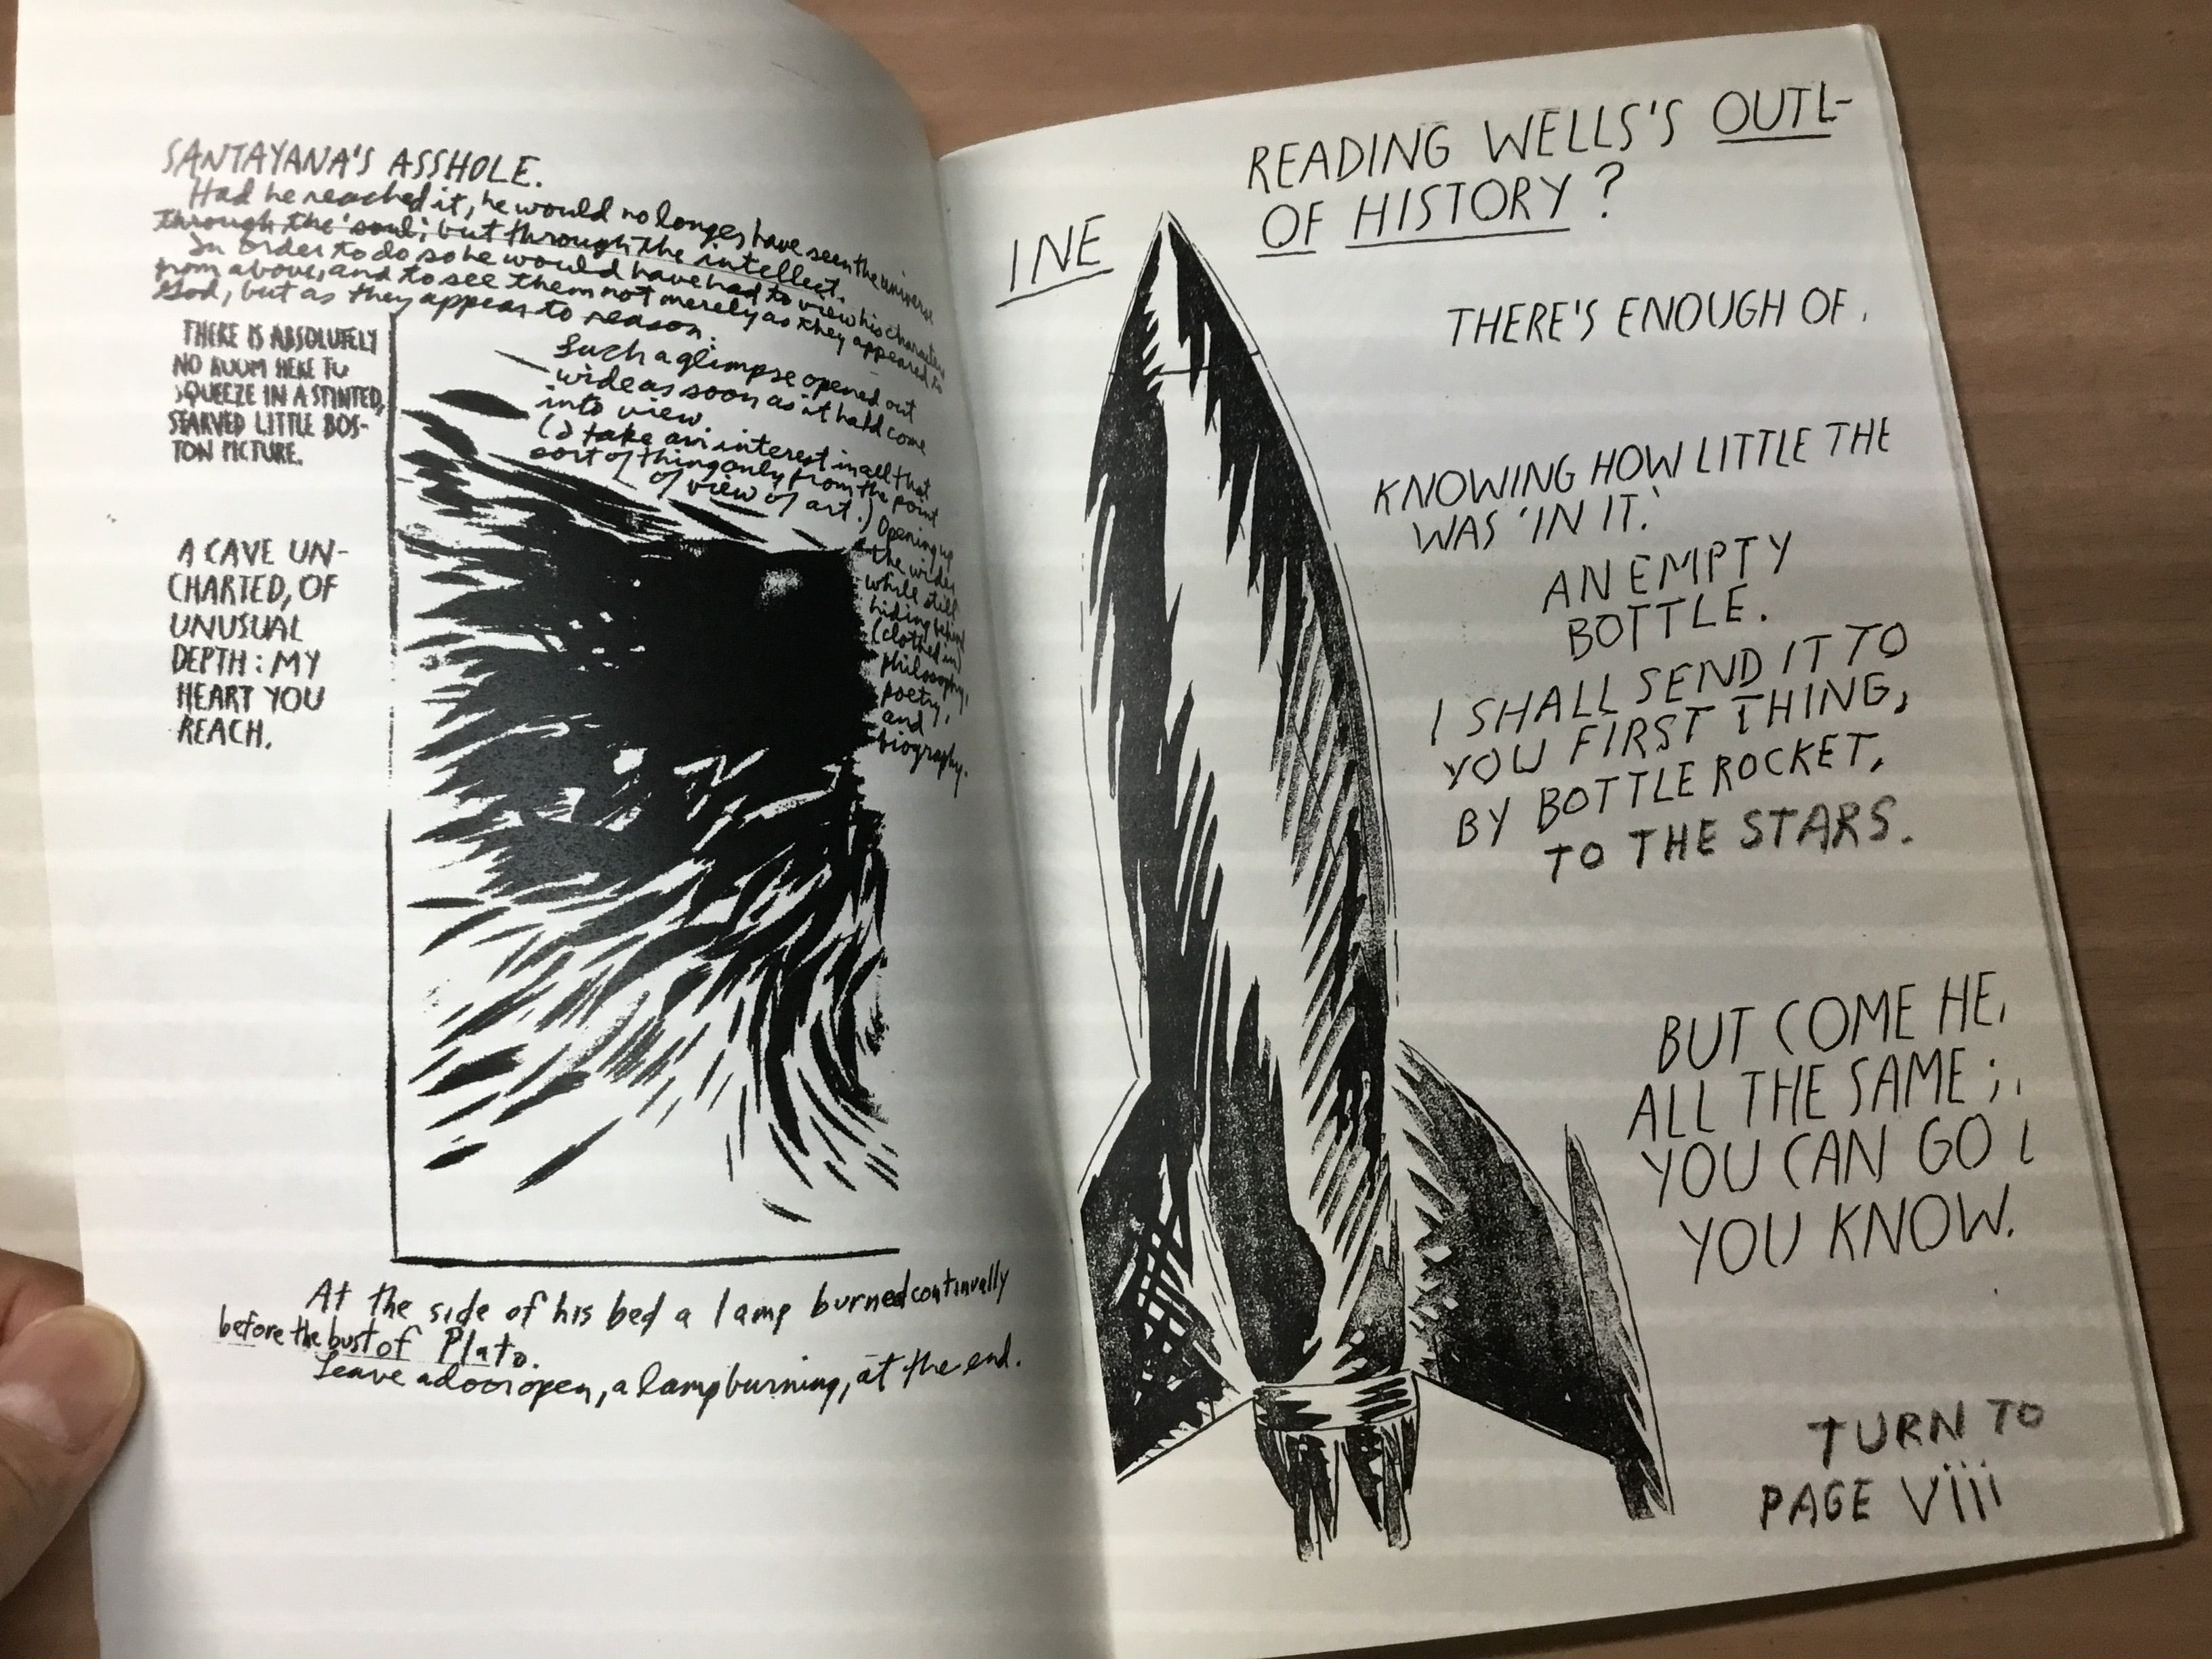 SANTAYANA'S ASSHOLE.
Had he reached it, he would no longer have seen the universe
through the 'soul', but through the intellect.
In order to do so he would have had to view his characters
from above, and to see them not merely as they appeared to
God, but as they appear to reason.
THERE IS ABSOLUTELY
NO ROOM HERE TO
SQUEEZE IN A STINTED,
STARVED LITTLE BOS-
TON PICTURE.
Such a glimpse opened out
wide as soon as it hald come
into view.
(I take an interest in all that
sort of thing only from the point
of view of art.)
Opening up
the wider
while still
hiding behind
(clothed in)
philosophy,
poetry,
and
biography.
A CAVE UN-
CHARTED, OF
UNUSUAL
DEPTH: MY
HEART YOU
REACH.
At the side of his bed a lamp burned continually
before the bust of Plato.
Leave a door open, a lamp burning, at the end.
READING WELLS'S OUTL-
INE
OF HISTORY?
THERE'S ENOUGH OF.
KNOWING HOW LITTLE THE
WAS 'IN IT.'
AN EMPTY
BOTTLE.
I SHALL SEND IT TO
YOU FIRST THING,
BY BOTTLE ROCKET,
TO THE STARS.
BUT COME HE,
ALL THE SAME;
YOU CAN GO
YOU KNOW.
TURN TO
PAGE Viii